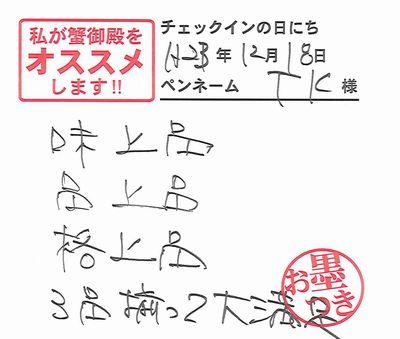 私が蟹御殿を
オススメ
します!!
チェックインの日にち
H23年12月18日
ペンネーム TK様
味上品
品上品
格上品
3品揃って大満足
お墨き